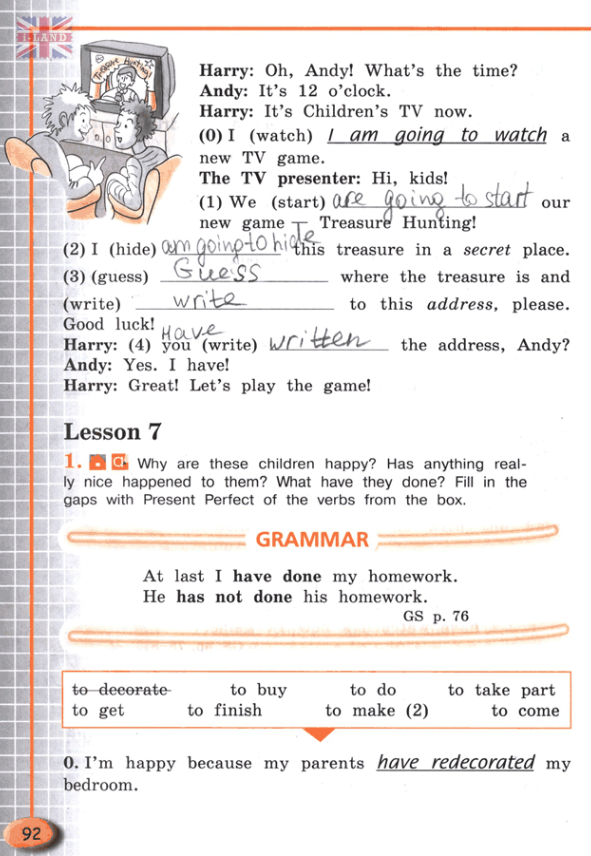 I-LAND
Treasure Hunting!
Harry: Oh, Andy! What's the time?
Andy: It's 12 o'clock.
Harry: It's Children's TV now.
(0) I (watch) I am going to watch a
new TV game.
The TV presenter: Hi, kids!
(1) We (start) are going to start our
new game — Treasure Hunting!
(2) I (hide) am going to hide this treasure in a secret place.
(3) (guess) Guess where the treasure is and
(write) write to this address, please.
Good luck! Have
Harry: (4) you (write) written the address, Andy?
Andy: Yes. I have!
Harry: Great! Let's play the game!
Lesson 7
1. Why are these children happy? Has anything real-
ly nice happened to them? What have they done? Fill in the
gaps with Present Perfect of the verbs from the box.
GRAMMAR
At last I have done my homework.
He has not done his homework.
GS p. 76
to decorate to buy to do to take part
to get to finish to make (2) to come
0. I'm happy because my parents have redecorated my
bedroom.
92